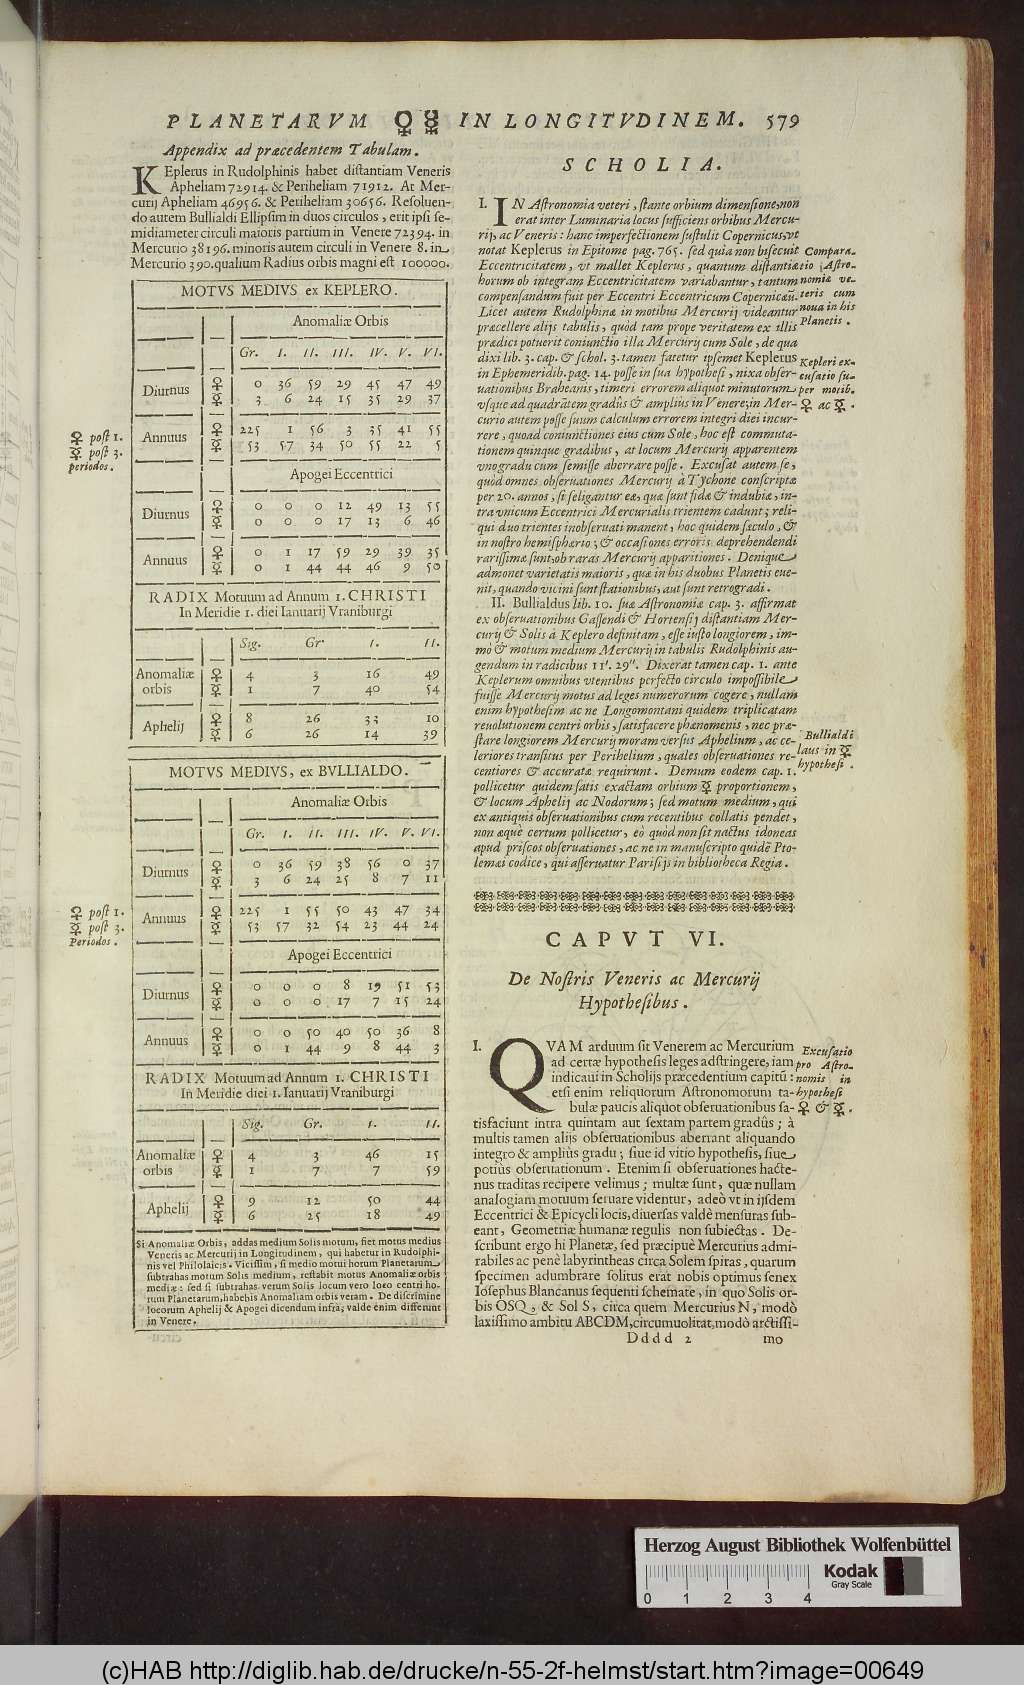 PLANETARVM ♀ ☿ IN LONGITVDINEM. 579
Appendix ad præcedentem Tabulam.
KEplerus in Rudolphinis habet distantiam Veneris
Apheliam 72914. & Periheliam 71912. At Mer-
curij Apheliam 46956. & Periheliam 30656. Resoluen-
do autem Bullialdi Ellipsim in duos circulos, erit ipsi se-
midiameter circuli maioris partium in Venere 72394. in
Mercurio 38196. minoris autem circuli in Venere 8. in
Mercurio 390. qualium Radius orbis magni est 100000.
MOTVS MEDIVS ex KEPLERO.
Anomaliæ Orbis
Gr. I. II. III. IV. V. VI.
Diurnus ♀ 0 36 59 29 45 47 49
☿ 3 6 24 15 35 29 37
♀ post 1.
☿ post 3.
periodos.
Annuus ♀ 225 1 56 3 35 41 55
☿ 53 57 34 50 55 22 5
Apogei Eccentrici
Diurnus ♀ 0 0 0 12 49 13 55
☿ 0 0 0 17 13 6 46
Annuus ♀ 0 1 17 59 29 39 35
☿ 0 1 44 44 46 9 50
RADIX Motuum ad Annum 1. CHRISTI
In Meridie 1. diei Ianuarij Vraniburgi
Sig. Gr. I. II.
Anomaliæ ♀ 4 3 16 49
orbis ☿ 1 7 40 54
Aphelij ♀ 8 26 33 10
☿ 6 26 14 39
MOTVS MEDIVS, ex BVLLIALDO.
Anomaliæ Orbis
Gr. I. II. III. IV. V. VI.
Diurnus ♀ 0 36 59 38 56 0 37
☿ 3 6 24 25 8 7 11
♀ post 1.
☿ post 3.
Periodos.
Annuus ♀ 225 1 55 50 43 47 34
☿ 53 57 32 54 23 44 24
Apogei Eccentrici
Diurnus ♀ 0 0 0 8 19 51 53
☿ 0 0 0 17 7 15 24
Annuus ♀ 0 0 50 40 50 36 8
☿ 0 1 44 9 8 44 3
RADIX Motuum ad Annum 1. CHRISTI
In Meridie diei 1. Ianuarij Vraniburgi
Sig. Gr. I. II.
Anomaliæ ♀ 4 3 46 15
orbis ☿ 1 7 7 59
Aphelij ♀ 9 12 50 44
☿ 6 25 18 49
Si Anomaliæ Orbis, addas medium Solis motum, fiet motus medius
Veneris ac Mercurij in Longitudinem, qui habetur in Rudolphi-
nis vel Philolaicis. Vicissim, si medio motui horum Planetarum
subtrahas motum Solis medium, restabit motus Anomaliæ orbis
mediæ: sed si subtrahas verum Solis locum vero loco centri ho-
rum Planetarum, habebis Anomaliam orbis veram. De discrimine
locorum Aphelij & Apogei dicendum infrà; valde enim differunt
in Venere.
SCHOLIA.
I. IN Astronomia veteri, stante orbium dimensione, non
erat inter Luminaria locus sufficiens orbibus Mercu-
rij, ac Veneris: hanc imperfectionem sustulit Copernicus, vt
notat Keplerus in Epitome pag. 765. sed quia non bisecuit
Eccentricitatem, vt mallet Keplerus, quantum distantiæ
horum ob integram Eccentricitatem variabantur, tantum
compensandum fuit per Eccentri Eccentricum Copernicæũ.
Licet autem Rudolphinæ in motibus Mercurij videantur
præcellere alijs tabulis, quòd tam prope veritatem ex illis
prædici potuerit coniunctio illa Mercurij cum Sole, de qua
dixi lib. 3. cap. & schol. 3. tamen fatetur ipsemet Keplerus
in Ephemeridib. pag. 14. posse in sua hypothesi, nixa obser-
uationibus Braheanis, timeri errorem aliquot minutorum
vsque ad quadrãtem gradûs & amplius in Venere; in Mer-
curio autem posse suum calculum errorem integri diei incur-
rere, quoad coniunctiones eius cum Sole, hoc est commuta-
tionem quinque gradibus, at locum Mercurij apparentem
vno gradu cum semisse aberrare posse. Excusat autem se,
quòd omnes obseruationes Mercurij à Tychone conscriptæ
per 20. annos, si seligantur eæ, quæ sunt fidæ & indubiæ, in-
tra vnicum Eccentrici Mercurialis trientem cadunt; reli-
qui duo trientes inobseruati manent, hoc quidem sæculo, &
in nostro hemisphærio; & occasiones erroris deprehendendi
rarissimæ sunt, ob raras Mercurij apparitiones. Denique
admonet varietatis maioris, quæ in his duobus Planetis eue-
nit, quando vicini sunt stationibus, aut sunt retrogradi.
II. Bullialdus lib. 10. suæ Astronomiæ cap. 3. affirmat
ex obseruationibus Gassendi & Hortensij distantiam Mer-
curij & Solis à Keplero definitam, esse iusto longiorem, im-
mò & motum medium Mercurij in tabulis Rudolphinis au-
gendum in radicibus 11'. 29''. Dixerat tamen cap. 1. ante
Keplerum omnibus vtentibus perfecto circulo impossibile
fuisse Mercurij motus ad leges numerorum cogere, nullam
enim hypothesim ac ne Longomontani quidem triplicatam
reuolutionem centri orbis, satisfacere phænomenis, nec præ-
stare longiorem Mercurij moram versus Aphelium, ac ce-
leriores transitus per Perihelium, quales obseruationes re-
centiores & accuratæ requirunt. Demum eodem cap. 1.
pollicetur quidem satis exactam orbium ☿ proportionem,
& locum Aphelij ac Nodorum; sed motum medium, qui
ex antiquis obseruationibus cum recentibus collatis pendet,
non æquè certum pollicetur, eò quòd non sit nactus idoneas
apud priscos obseruationes, ac ne in manuscripto quidẽ Pto-
lemæi codice, qui asseruatur Parisijs in bibliotheca Regia.
Compara-
tio Astro-
nomiæ ve-
teris cum
noua in his
Planetis.
Kepleri ex-
cusatio su-
per motib.
♀ ac ☿.
Bullialdi
laus in ☿
hypothesi.
CAPVT VI.
De Nostris Veneris ac Mercurij
Hypothesibus.
I. QVAM arduum sit Venerem ac Mercurium
ad certæ hypothesis leges adstringere, iam
indicaui in Scholijs præcedentium capitũ:
etsi enim reliquorum Astronomorum ta-
bulæ paucis aliquot obseruationibus sa-
tisfaciunt intra quintam aut sextam partem gradûs; à
multis tamen alijs obseruationibus aberrant aliquando
integro & ampliùs gradu; siue id vitio hypothesis, siue
potiùs obseruationum. Etenim si obseruationes hacte-
nus traditas recipere velimus; multæ sunt, quæ nullam
analogiam motuum seruare videntur, adeò vt in ijsdem
Eccentrici & Epicycli locis, diuersas valdè mensuras sub-
eant, Geometriæ humanæ regulis non subiectas. De-
scribunt ergo hi Planetæ, sed præcipuè Mercurius admi-
rabiles ac penè labyrintheas circa Solem spiras, quarum
specimen adumbrare solitus erat nobis optimus senex
Iosephus Blancanus sequenti schemate, in quo Solis or-
bis OSQ, & Sol S, circa quem Mercurius N, modò
laxissimo ambitu ABCDM, circumuolitat, modò arctissi-
Excusatio
pro Astro-
nomis in
hypothesi
♀ & ☿.
Dddd 2 mo
Herzog August Bibliothek Wolfenbüttel
Kodak
Gray Scale
0 1 2 3 4
(c)HAB http://diglib.hab.de/drucke/n-55-2f-helmst/start.htm?image=00649